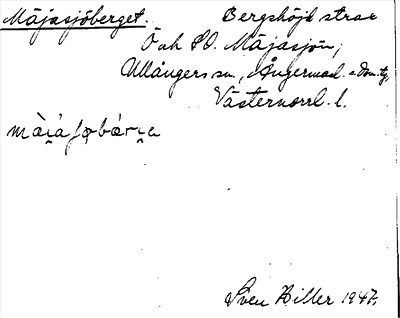 Måjasjöberget. Bergshöjd strax
Ö och SO. Måjasjön,
Ullångers sn, Ångermanl.
Västernorrl. l.
Sven Hiller 1947.